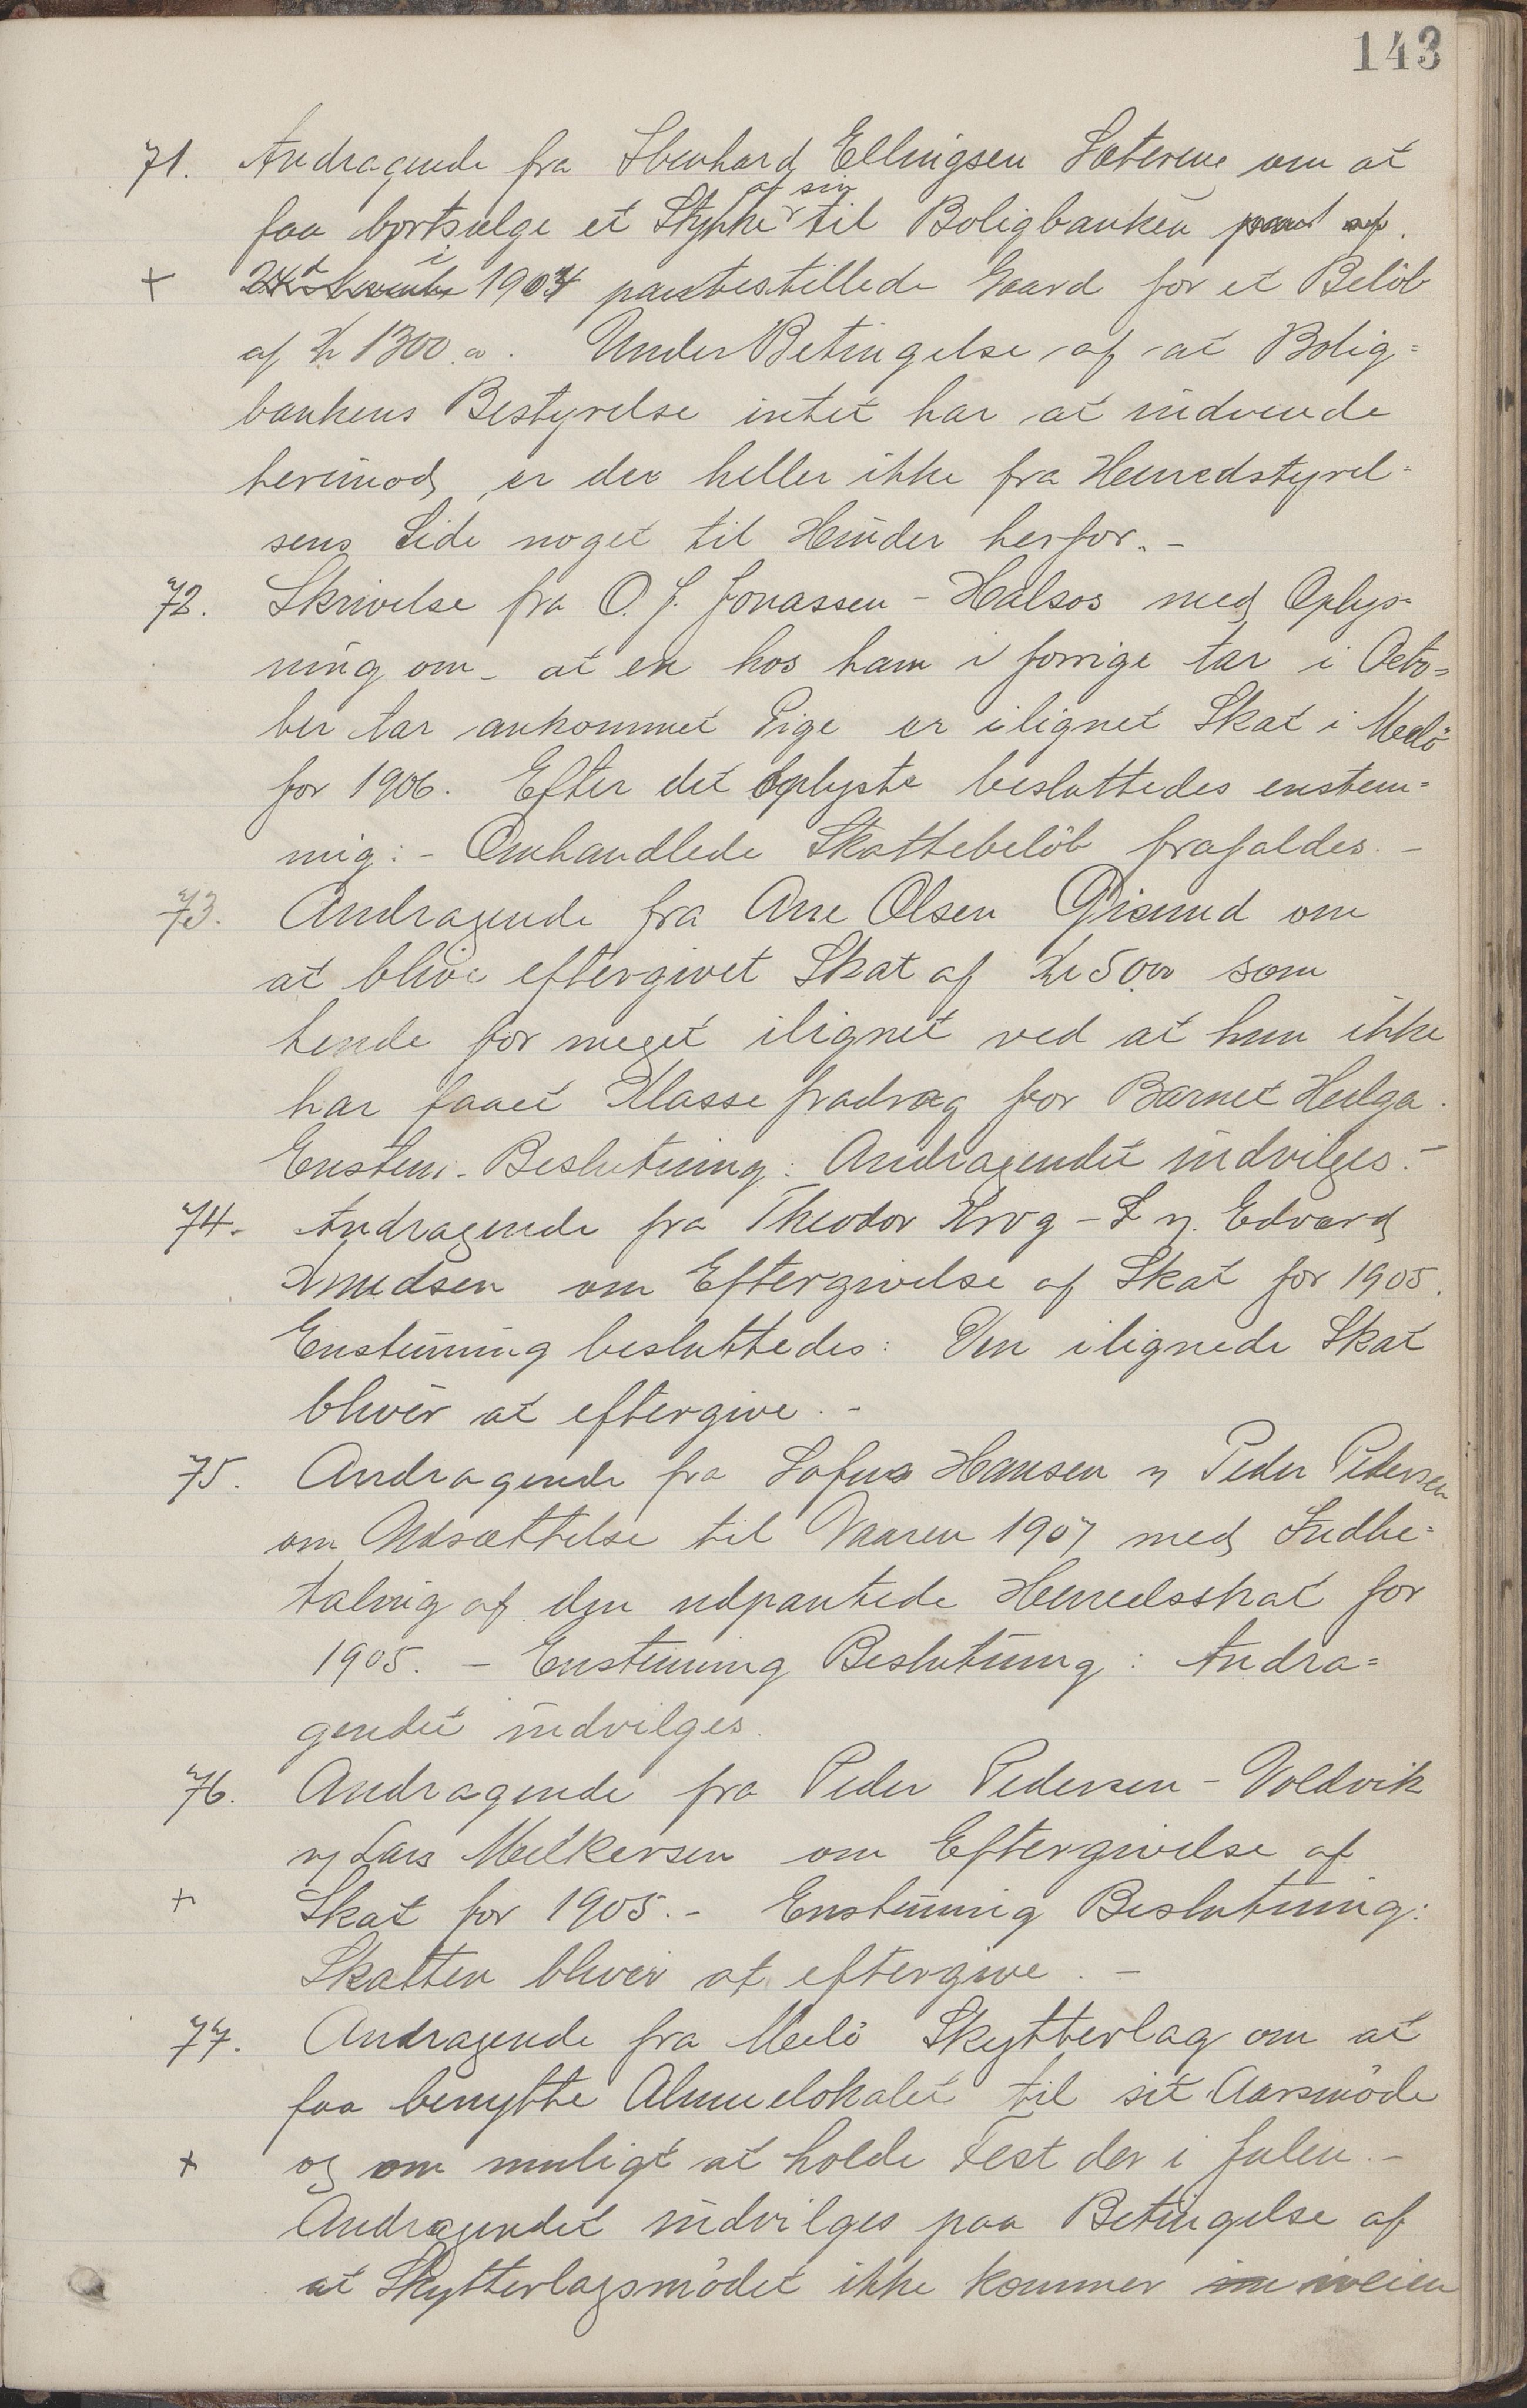 143
71. Andragende fra Ebenhard Ellingsen Sæterene om at
af sin
faa bortsælge et Stykke til Boligbanken
+ i 1904 pantestillede Gaard for et Beløb
af Kr 1300.00. Under Betingelse af at Bolig=
bankens Bestyrelse intet har at indvende
herimod, er der heller ikke fra Herredstyrel=
sens Side noget til Hinder herfor. –
72. Skrivelse fra O. J. Jonassen – Halsos med Oplys=
ning om – at en hos ham i forrige Aar i Octo=
ber Aar ankommet Pige er ilignet Skat i Melö
for 1906. Efter det Oplyste besluttedes enstem=
mig: – Omhandlede Skattebelöb frafaldes. –
73. Andragende fra Ane Olsen Grimud om
at blive eftergivet Skat af Kr 5.00 som
hende for meget ilignet ved at hun ikke
har faaet Klassefradrag for Barnet Helga.
Enstem. Beslutning: Andragendet indvilges. –
74. Andragende fra Theodor Krog – L. og Edvard
Knudsen om Eftergivelse af Skat for 1905.
Enstemmig besluttedes: Den ilignede Skat
bliver at eftergive. –
75. Andragende fra Sofus Hansen og Peder Pedersen
om Udsættelse til Vaaren 1907 med Indbe=
taling af den udpantede Herredsskat for
1905. – Enstemmig Beslutning: Andra=
gendet indvilges.
76. Andragende fra Peder Pedersen – Voldvik
og Lars Melkersen om Eftergivelse af
+ Skat for 1905. – Enstemmig Beslutning:
Skatten bliver at eftergive. –
77. Andragende fra Melö Skytterlag om at
faa benytte Almuelokalet til sit Aarsmöde
+ og om muligt at holde Fest der i Julen. –
Andragendet indvilges paa Betingelse af
at Skytterlagsmödet ikke kommer iveien